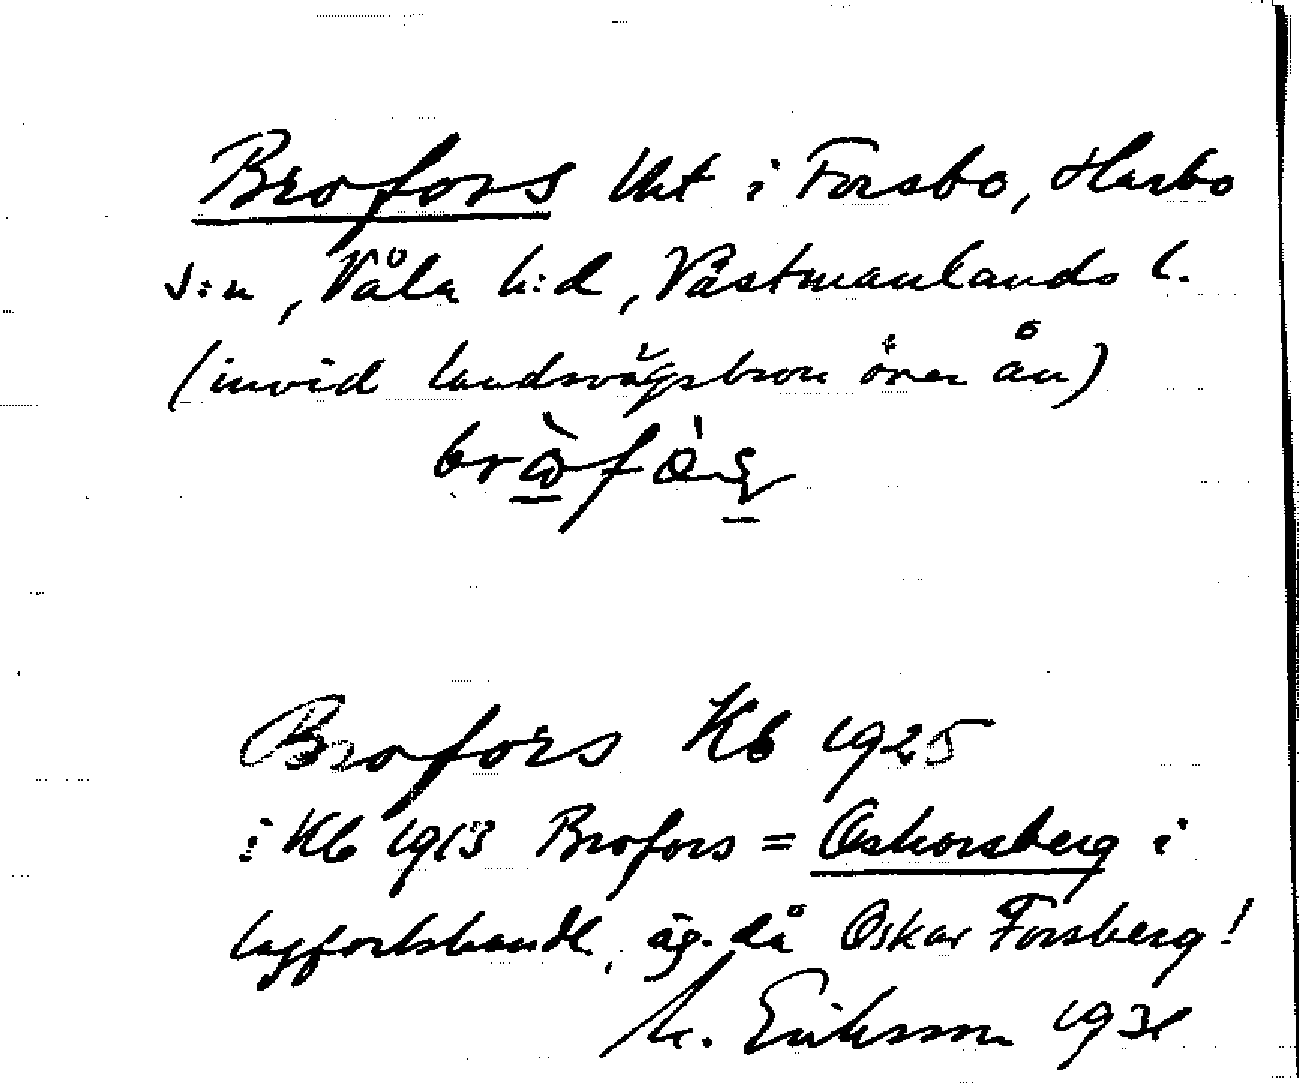 Brofors lht i Forsbo, Harbo
s:n, Våla h:d, Västmanlands l.
(invid landsvägsbron över ån)
Brofors Kb 1925
i Kb 1913 Brofors = Oskorsberg i
lagfartshandl., äg. då Oskar Forsberg!
M. Eriksson 1931